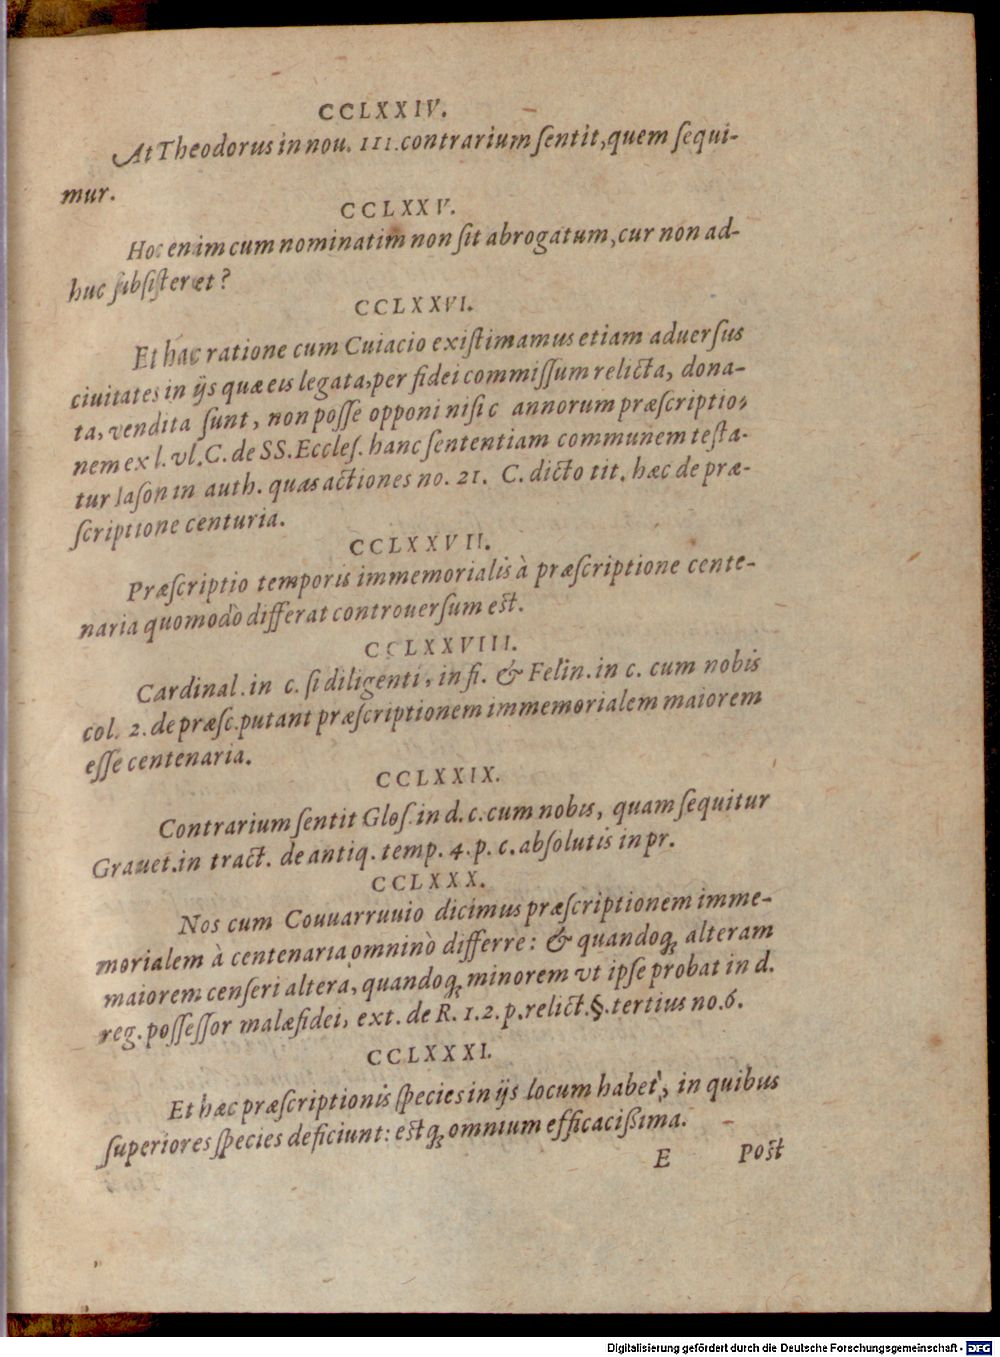 CCLXXIV.
At Theodorus in nou. III. contrarium ſentit, quem ſequi-
mur.
CCLXXV.
Hoc enim cum nominatim non ſit abrogatum, cur non ad-
huc ſubſiſteret?
CCLXXVI.
Et hac ratione cum Cuiacio exiſtimamus etiam aduerſus
ciuitates in ijs quæ eis legata, per fidei commiſſum relicta, dona-
ta, vendita ſunt, non poſſe opponi niſi c annorum præſcriptio-
nem ex l. vl. C. de SS. Eccleſ. hanc ſententiam communem teſta-
tur Iaſon in auth. quas actiones no. 21. C. dicto tit. hæc de præ-
ſcriptione centuria.
CCLXXVII.
Præſcriptio temporis immemorialis à præſcriptione cente-
naria quomodò differat controuerſum eſt.
CCLXXVIII.
Cardinal. in c. ſi diligenti, in fi. & Felin. in c. cum nobis
col. 2. de præſc. putant præſcriptionem immemorialem maiorem
eſſe centenaria.
CCLXXIX.
Contrarium ſentit Gloſ. in d. c. cum nobis, quam ſequitur
Grauet. in tract. de antiq. temp. 4. p. c. abſolutis in pr.
CCLXXX.
Nos cum Couuarruuio dicimus præſcriptionem imme-
morialem à centenaria omninò differre: & quandoq; alteram
maiorem cenſeri altera, quandoq; minorem vt ipſe probat in d.
reg. poſſeſſor malæ fidei, ext. de R. 1. 2. p. relict. §. tertius no. 6.
CCLXXXI.
Et hæc præſcriptionis ſpecies in ijs locum habet, in quibus
ſuperiores ſpecies deficiunt: eſtq; omnium efficacißima.
E Poſt
Digitalisierung gefördert durch die Deutsche Forschungsgemeinschaft - DFG